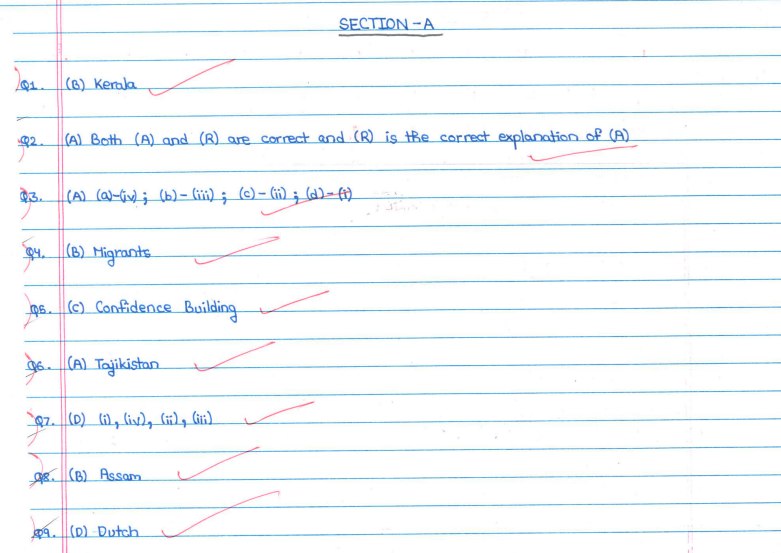 SECTION-A
Q1. (B) Kerala
Q2. (A) Both (A) and (R) are correct and (R) is the correct explanation of (A)
Q3. (A) (a)-(iv) ; (b)-(iii) ; (c)-(ii) ; (d)-(i)
Q4. (B) Migrants
Q5. (C) Confidence Building
Q6. (A) Tajikistan
Q7. (D) (i), (iv), (ii), (iii)
Q8. (B) Assam
Q9. (D) Dutch